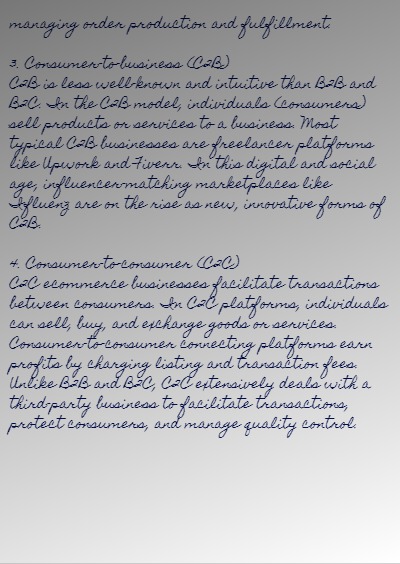 managing order production and fulfillment.
3. Consumer-to-business (C2B)
C2B is less well-known and intuitive than B2B and
B2C. In the C2B model, individuals (consumers)
sell products or services to a business. Most
typical C2B businesses are freelancer platforms
like Upwork and Fiverr. In this digital and social
age, influencer-matching marketplaces like
Influenz are on the rise as new, innovative forms of
C2B.
4. Consumer-to-consumer (C2C)
C2C ecommerce businesses facilitate transactions
between consumers. In C2C platforms, individuals
can sell, buy, and exchange goods or services.
Consumer-to-consumer connecting platforms earn
profits by charging listing and transaction fees.
Unlike B2B and B2C, C2C extensively deals with a
third-party business to facilitate transactions,
protect consumers, and manage quality control.